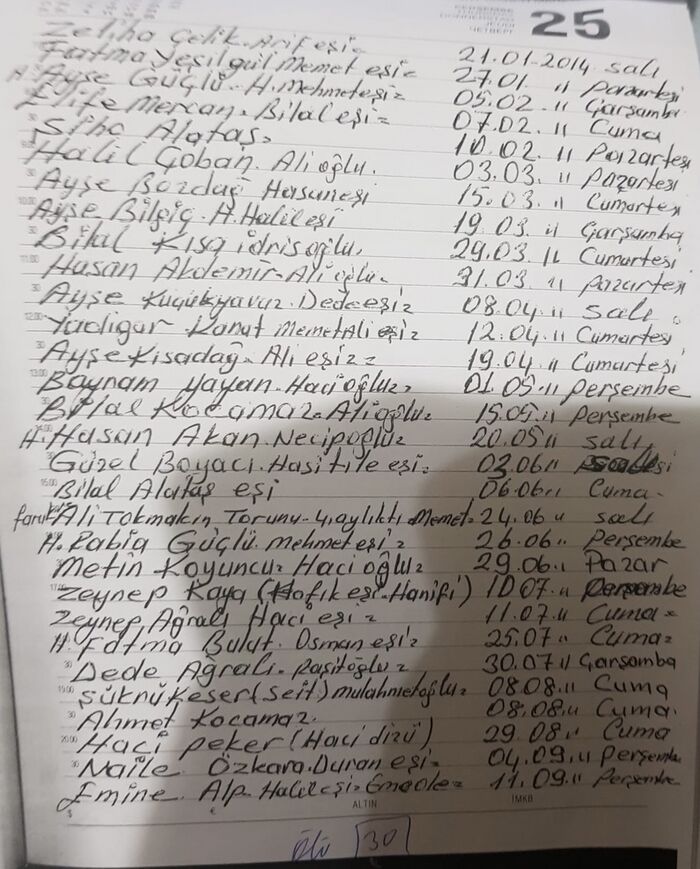 PERŞEMBE
25
Zeliha Çelik. Arif eşi= 21.01.2014 salı
Fatma Yeşilgül Memet eşi= 27.01. " pazartesi
H. Ayşe Güçlü. H. Mehmeteşi= 05.02. " Çarşamba
Elife Mercan. Bilal eşi= 07.02. " Cuma
Sıho Alataş. 10.02. " Pazartesi
Halil Çoban. Ali oğlu. 03.03. " Pazartesi
Ayşe Bozdağ Hasaneşi 15.03. " Cumartesi
Ayşe Bilgiç. H. Halil eşi 19.03. " Çarşamba
Bilal Kısa idrisoğlu. 29.03. " Cumartesi
Hasan Akdemir-Ali oğlu. 31.03. " pazartesi
Ayşe Küçükyavuz. Dede eşi= 08.04. " salı.
Yadigar Kanat Memet Ali eşi= 12.04. " Cumartesi
Ayşe Kısadağ. Ali eşi== 19.04 " Cumartesi
Bayram yayan. Hacıoğlu= 01.05. " perşembe
Bilal Kocamaz. Alioğlu= 15.05. " perşembe
H. Hasan Akan. Necipoğlu= 20.05 " salı,
Güzel Boyacı. eşi= 03.06 "
Bilal Alataş eşi 06.06. " Cuma-
faruk Ali Tokmakın Torunu-4. aylıktı Memet. 24.06 " salı
H. Rabia Güçlü. mehmet eşi= 26.06. " perşembe
Metin Koyuncu= Hacı oğlu= 29.06. " Pazar
Zeynep Kaya (Hafık eşi. Hanifi) 10 07. " Perşembe
Zeynep Ağralı Hacı eşi= 11.07. " Cuma=
H. Fatma Bulut. Osman eşi= 25.07 " Cuma=
Dede Ağralı. Raşitoğlu= 30.07 " Çarşamba
Şükrü Keser (Seit) mulahmetoğlu= 08.08. " Cuma
Ahmet Kocamaz. 08.08. " Cuma.
Hacı peker (Hacı dizü) 29 08. " Cuma
Naile Özkara. Duran eşi= 04.09. " perşembe
Emine. Alp. Halil eşi= 11.09. " Perşembe
$ € ALTIN İMKB
Ölü 30